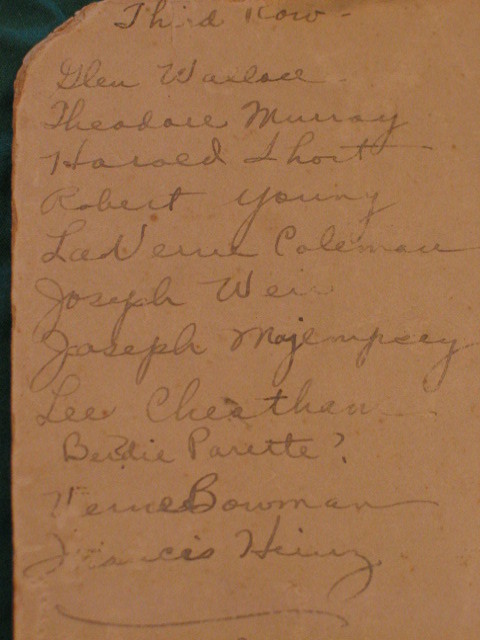 Third Row -
Glen Wallace
Theodore Murray
Harold Short
Robert Young
LaVerne Coleman
Joseph Weir
Joseph
Lee Cheatham
Parette?
Verne Bowman
Francis Heinz